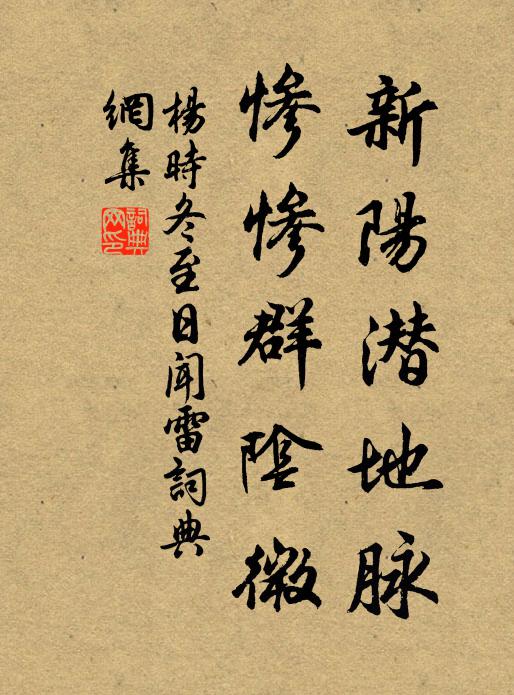 新陽潜地脉
惨惨群陰微
楊時冬至日闻雷詞典
網集
詞典网印